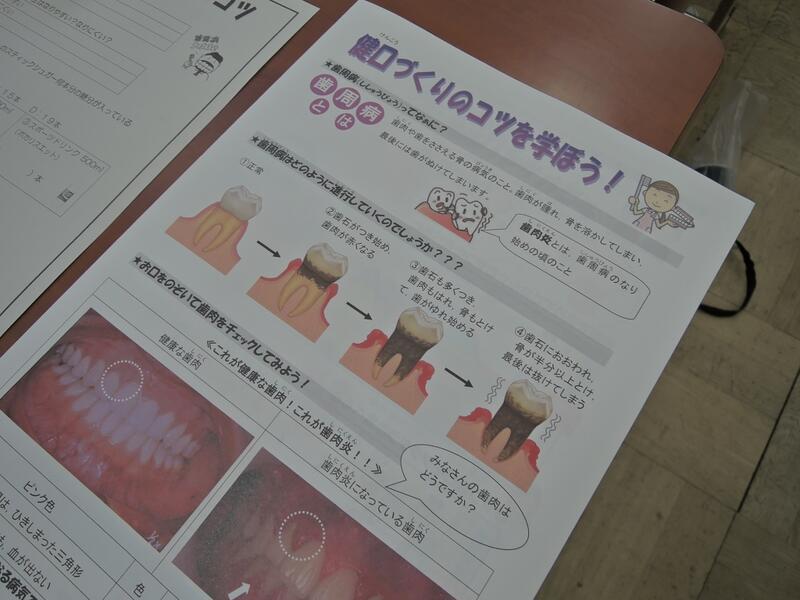 コツ
なりやすい？なりにくい？
のスティックシュガー何本分の糖分が入っている
15本 D. 19本
③スポーツドリンク 500ml
(ポカリスエット)
( )本
けんこう
健口づくりのコツを学ぼう！
★歯周病(ししゅうびょう)ってなぁに？
歯周病とは
歯肉や歯をささえる骨の病気のこと。歯肉が腫れ、骨を溶かしてしまい、
最後には歯がぬけてしまいます。
歯肉炎とは、歯周病のなり
始めの頃のこと
★歯周病はどのように進行していくのでしょうか？？？
①正常
②歯石がつき始め、
歯肉が赤くなる
③歯石も多くつき、
歯肉もはれ、骨もとけ
て、歯がゆれ始める
④歯石におおわれ、
骨が半分以上とけ、
最後は抜けてしまう
★お口をのぞいて歯肉をチェックしてみよう！
≪これが健康な歯肉！これが歯肉炎！！≫
健康な歯肉
歯肉炎になっている歯肉
みなさんの歯肉は
どうですか？
ピンク色
は、ひきしまった三角形
も、血が出ない
色